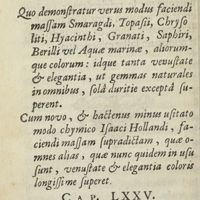 Quo demonstratur verus modus faciendi
massam Smaragdi, Topasii, Chryso
liti, Hyacinthi, Granati, Saphiri,
Berilli vel Aquæ marinæ, aliorum-
que colorum: idque tanta venustate
& elegantia, ut gemmas naturales
in omnibus, sold duritie exceptâ su-
perent.
Cum novo, & hactenus minus usitato
modo chymico Isaaci Hollandi, fa-
ciendi massam supradictam, quæ o-
mnes alias, quæ nunc quidem in usu
sunt, venustate & elegantia coloris
longissime superet.
CAP. LXXV.